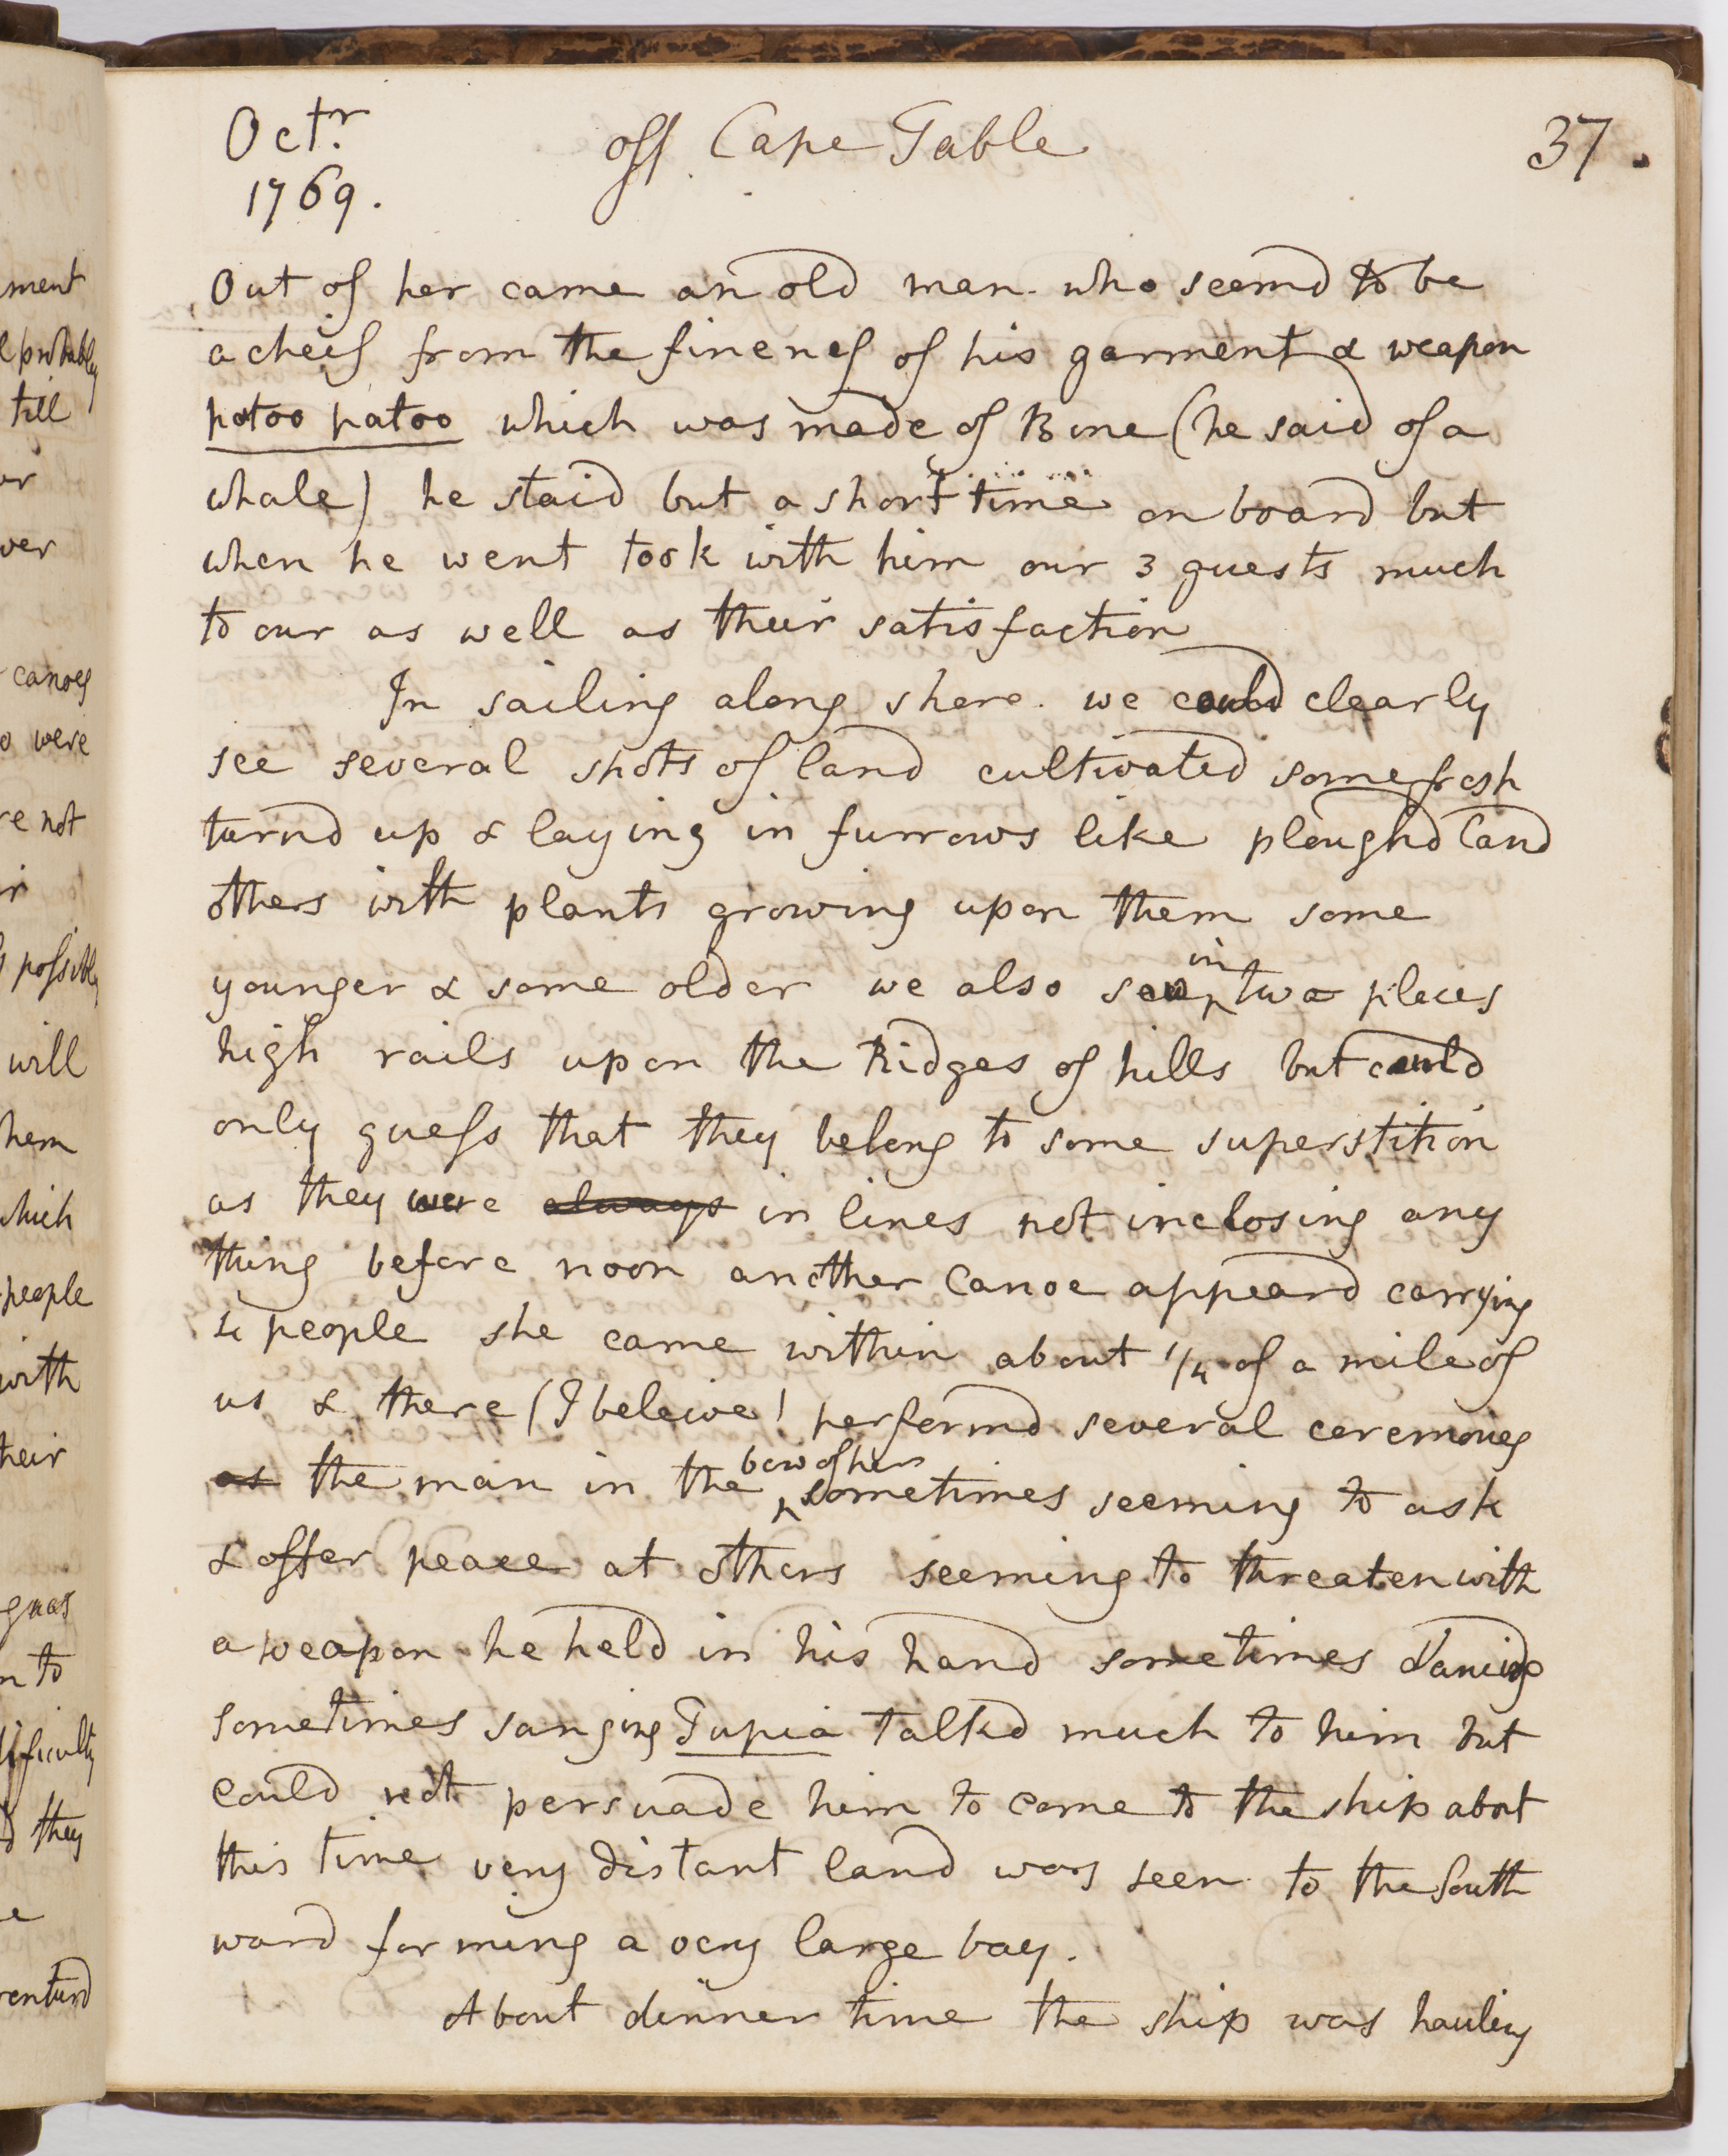 Octr.
1769.
off Cape Table
37.
Out of her came an old man who seemd to be
a cheif from the fineness of his garment & weapon
patoo patoo which was made of Bone (he said of a
whale) he staid but a short time on board but
when he went took with him our 3 guests much
to our as well as their satisfaction
In sailing along shore we could clearly
see several spots of land cultivated some fresh
turnd up & laying in furrows like ploughd land
others with plants growing upon them some
younger & some older we also saw in two places
high rails upon the Ridges of hills but could
only guess that they belong to some superstition
as they were always in lines not inclosing any
thing before noon another Canoe appeard carrying
4 people she came within about 1/4 of a mile of
us & there (I beleive) performd several ceremonies
as the man in the bow of her sometimes seeming to ask
& offer peace at others seeming to threaten with
a weapon he held in his hand sometimes dancing
sometimes singing Tupia talkd much to him but
could not persuade him to come to the ship about
this time very distant land was seen to the South
ward forming a very large bay.
About dinner time the ship was hauling
ment
probably
till
ver
canoes
were
not
possibly
will
hem
which
people
with
their
to
difficulty
they